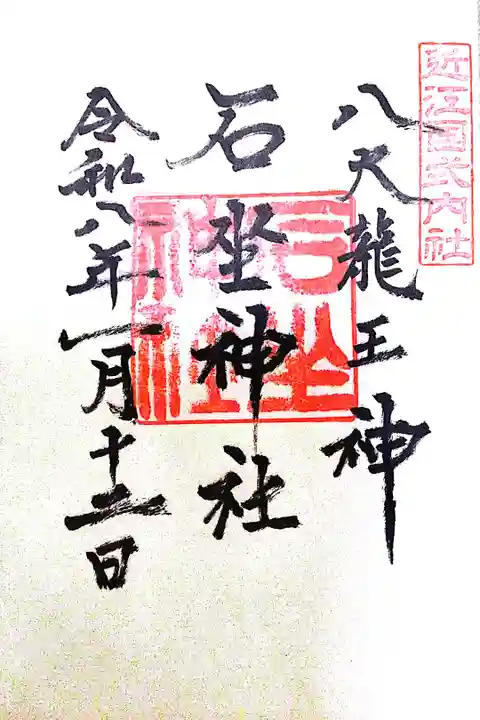 近江国式内社
八大龍王神
石坐神社
令和八年一月十二日